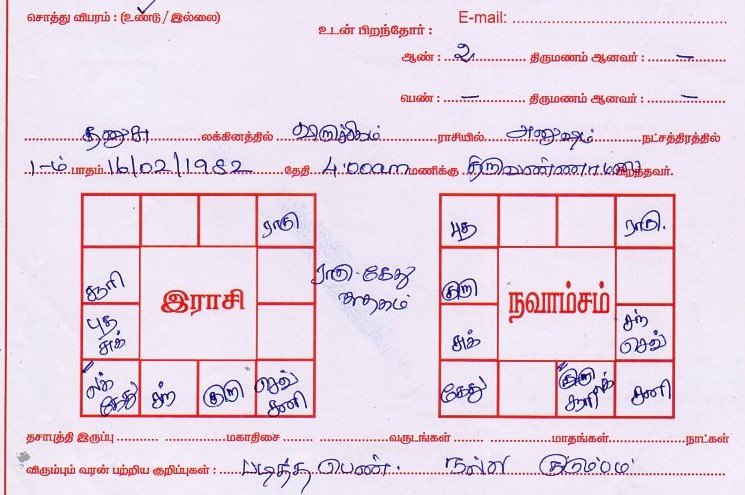 சொத்து விபரம் : (உண்டு / இல்லை)
E-mail:
உடன் பிறந்தோர் :
ஆண் : 2 திருமணம் ஆனவர் : –
பெண் : – திருமணம் ஆனவர் : –
தனுசு லக்கினத்தில் விருச்சிகம் ராசியில் அனுஷம் நட்சத்திரத்தில்
1-ம் பாதம் 16/02/1982 தேதி 4.00am மணிக்கு திருவண்ணாமலை பிறந்தவர்.
ராகு
சூரி
புத சுக்
லக் கேது
சந்
குரு
செவ் சனி
இராசி
ராகு-கேது
ஜாதகம்
புத
ராகு.
குரு
சுக்
சந் செவ்
கேது
சூரி
சனி
நவாம்சம்
தசாபுத்தி இருப்பு மகாதிசை வருடங்கள் மாதங்கள் நாட்கள்
விரும்பும் வரன் பற்றிய குறிப்புகள் : படித்த பெண். நல்ல குடும்பம்